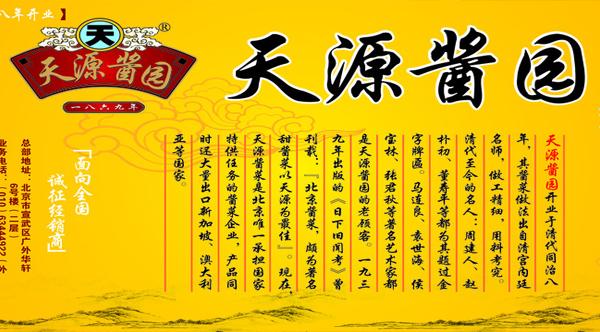 八年开业】
天
®
天源酱园
一八六九年
天源酱园
天源酱园开业于清代同治八
年，其酱菜做法出自清宫内廷
名师，做工精细，用料考究。
清代至今的名人：周建人、赵
朴初、董寿平等都为其题过金
字牌匾。马连良、袁世海、侯
宝林、张君秋等著名艺术家都
是天源酱园的老顾客。一九三
九年出版的《日下旧闻考》曾
刊载：『北京酱菜，颇为著名
甜酱菜以天源为最佳』。现在，
天源酱菜是北京唯一承担国家
特供任务的酱菜企业，产品同
时还大量出口新加坡、澳大利
亚等国家。
「面向全国
诚征经销商」
总部地址：北京市宣武区广外华轩
6号楼（二层）
业务电话：（010）63444922（外